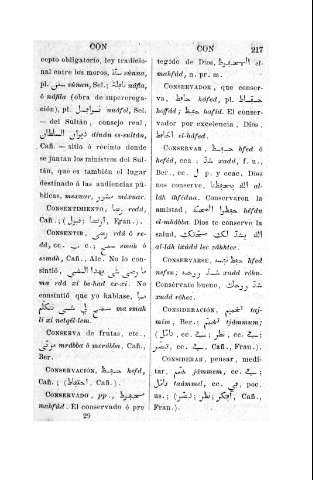 CON
CON
217
cepto obligatorio, ley tradicio-
nal entre los moros, سنّة súnna,
pl. سنن súnen, Sel.; نافلة náfila
ó náfla (obra de supereroga-
ción), pl. نوافل nuáfel, Sel.
— del Sultán, consejo real,
ديوان السلطان diuán es-sultán,
Cañ. — sitio ó recinto donde
se juntan los ministros del Sul-
tán, que es también el lugar
destinado á las audiencias pú-
blicas, mexuar, مشور méxuar.
CONSENTIMIENTO, رضا redá,
Cañ.; (ارتضا, Fran.).
CONSENTIR, رضى rdá ó re-
dá, cc. ب c.; سمح smah ó
esmáh, Cañ., Alc. No lo con-
sintió, ما رضى شى بهذا الشى
ma rdá xi be-had ex-xi. No
consintió que yo hablase, ما
سمح لى شى نتكلّم ma smah
li xi netqél-lem.
CONSERVA de frutas, etc.,
مربّى mrábba ó merábba, Cañ.,
Ber.
CONSERVACIÓN, حفظ hefd,
Cañ.; (احتفاظ, Cañ.).
CONSERVADO, pp., محفوظ
mahfúd. El conservado ó pro-
29
tegido de Dios, المحفوظ el-
mahfúd, n. pr. m.
CONSERVADOR, que conser-
va, حافظ háfed, pl. حفّاظ
hoffád; حفيظ hafíd. El conser-
vador por excelencia, Dios,
الحافظ el-háfed.
CONSERVAR, حفظ hfed ó
heféd, cca.; شدّ xudd, f. u.,
Ber., cc. ل p. y ccac. Dios
nos conserve, الله يحفظنا al-
láh iháfdna. Conservaron la
amistad, حفظوا المحبّة héfdu
el-mhábba. Dios te conserve la
salud, الله يشدّ لك صحّتك
al-láh ixúdd lec sáhhtec.
CONSERVARSE, حفظ نفسه hfed
néfsu; شدّ روحه xudd róhu.
Consérvate bueno, شدّ روحك
xudd róhec.
CONSIDERACIÓN, تخميم taj-
mím, Ber.;
CONSIDERAR, pensar, medi-
tar, خمّم jámmem, cc. فى;
تأمّل taámmel, cc. فى, poc.
us.; (نظر; افتكر, Cañ.,
Fran.).